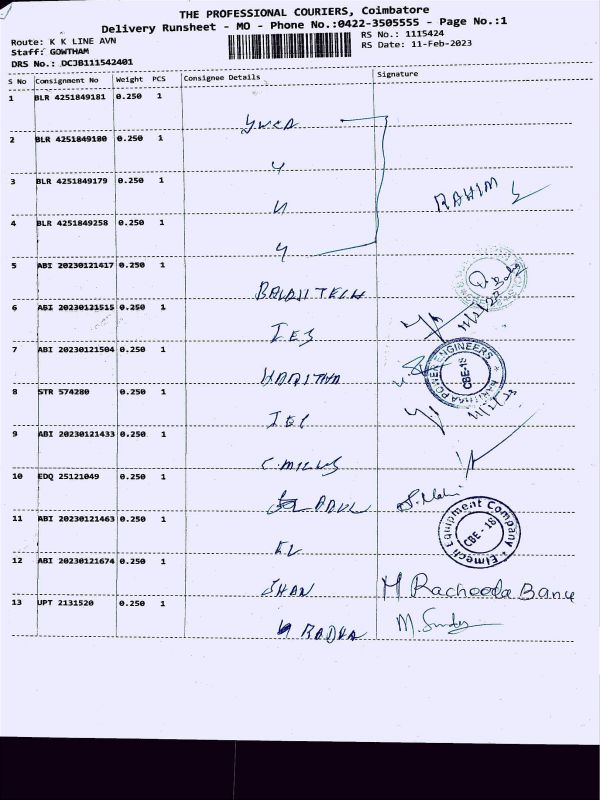 THE PROFESSIONAL COURIERS, Coimbatore
Delivery Runsheet - MO - Phone No.:0422-3505555 - Page No.:1
Route: K K LINE AVN
RS No.: 1115424
Staff: GOWTHAM
RS Date: 11-Feb-2023
DRS No.: DCJB111542401
S No Consignment No Weight PCS Consignee Details Signature
1 BLR 4251849181 0.250 1
2 BLR 4251849180 0.250 1
3 BLR 4251849179 0.250 1
RAHIM
4 BLR 4251849258 0.250 1
5 ABI 20230121417 0.250 1
BALAJI TECH
6 ABI 20230121515 0.250 1
IES
7 ABI 20230121504 0.250 1
HARITHA
HARITHAA POWER ENGINEERS
CBE-18
8 STR 574280 0.250 1
9 ABI 20230121433 0.250 1
C.MILLS
10 EDQ 25121049 0.250 1
11 ABI 20230121463 0.250 1
Elmech Equipment Company
CBE - 18
12 ABI 20230121674 0.250 1
M Racheeda Banu
13 UPT 2131520 0.250 1
RADHA